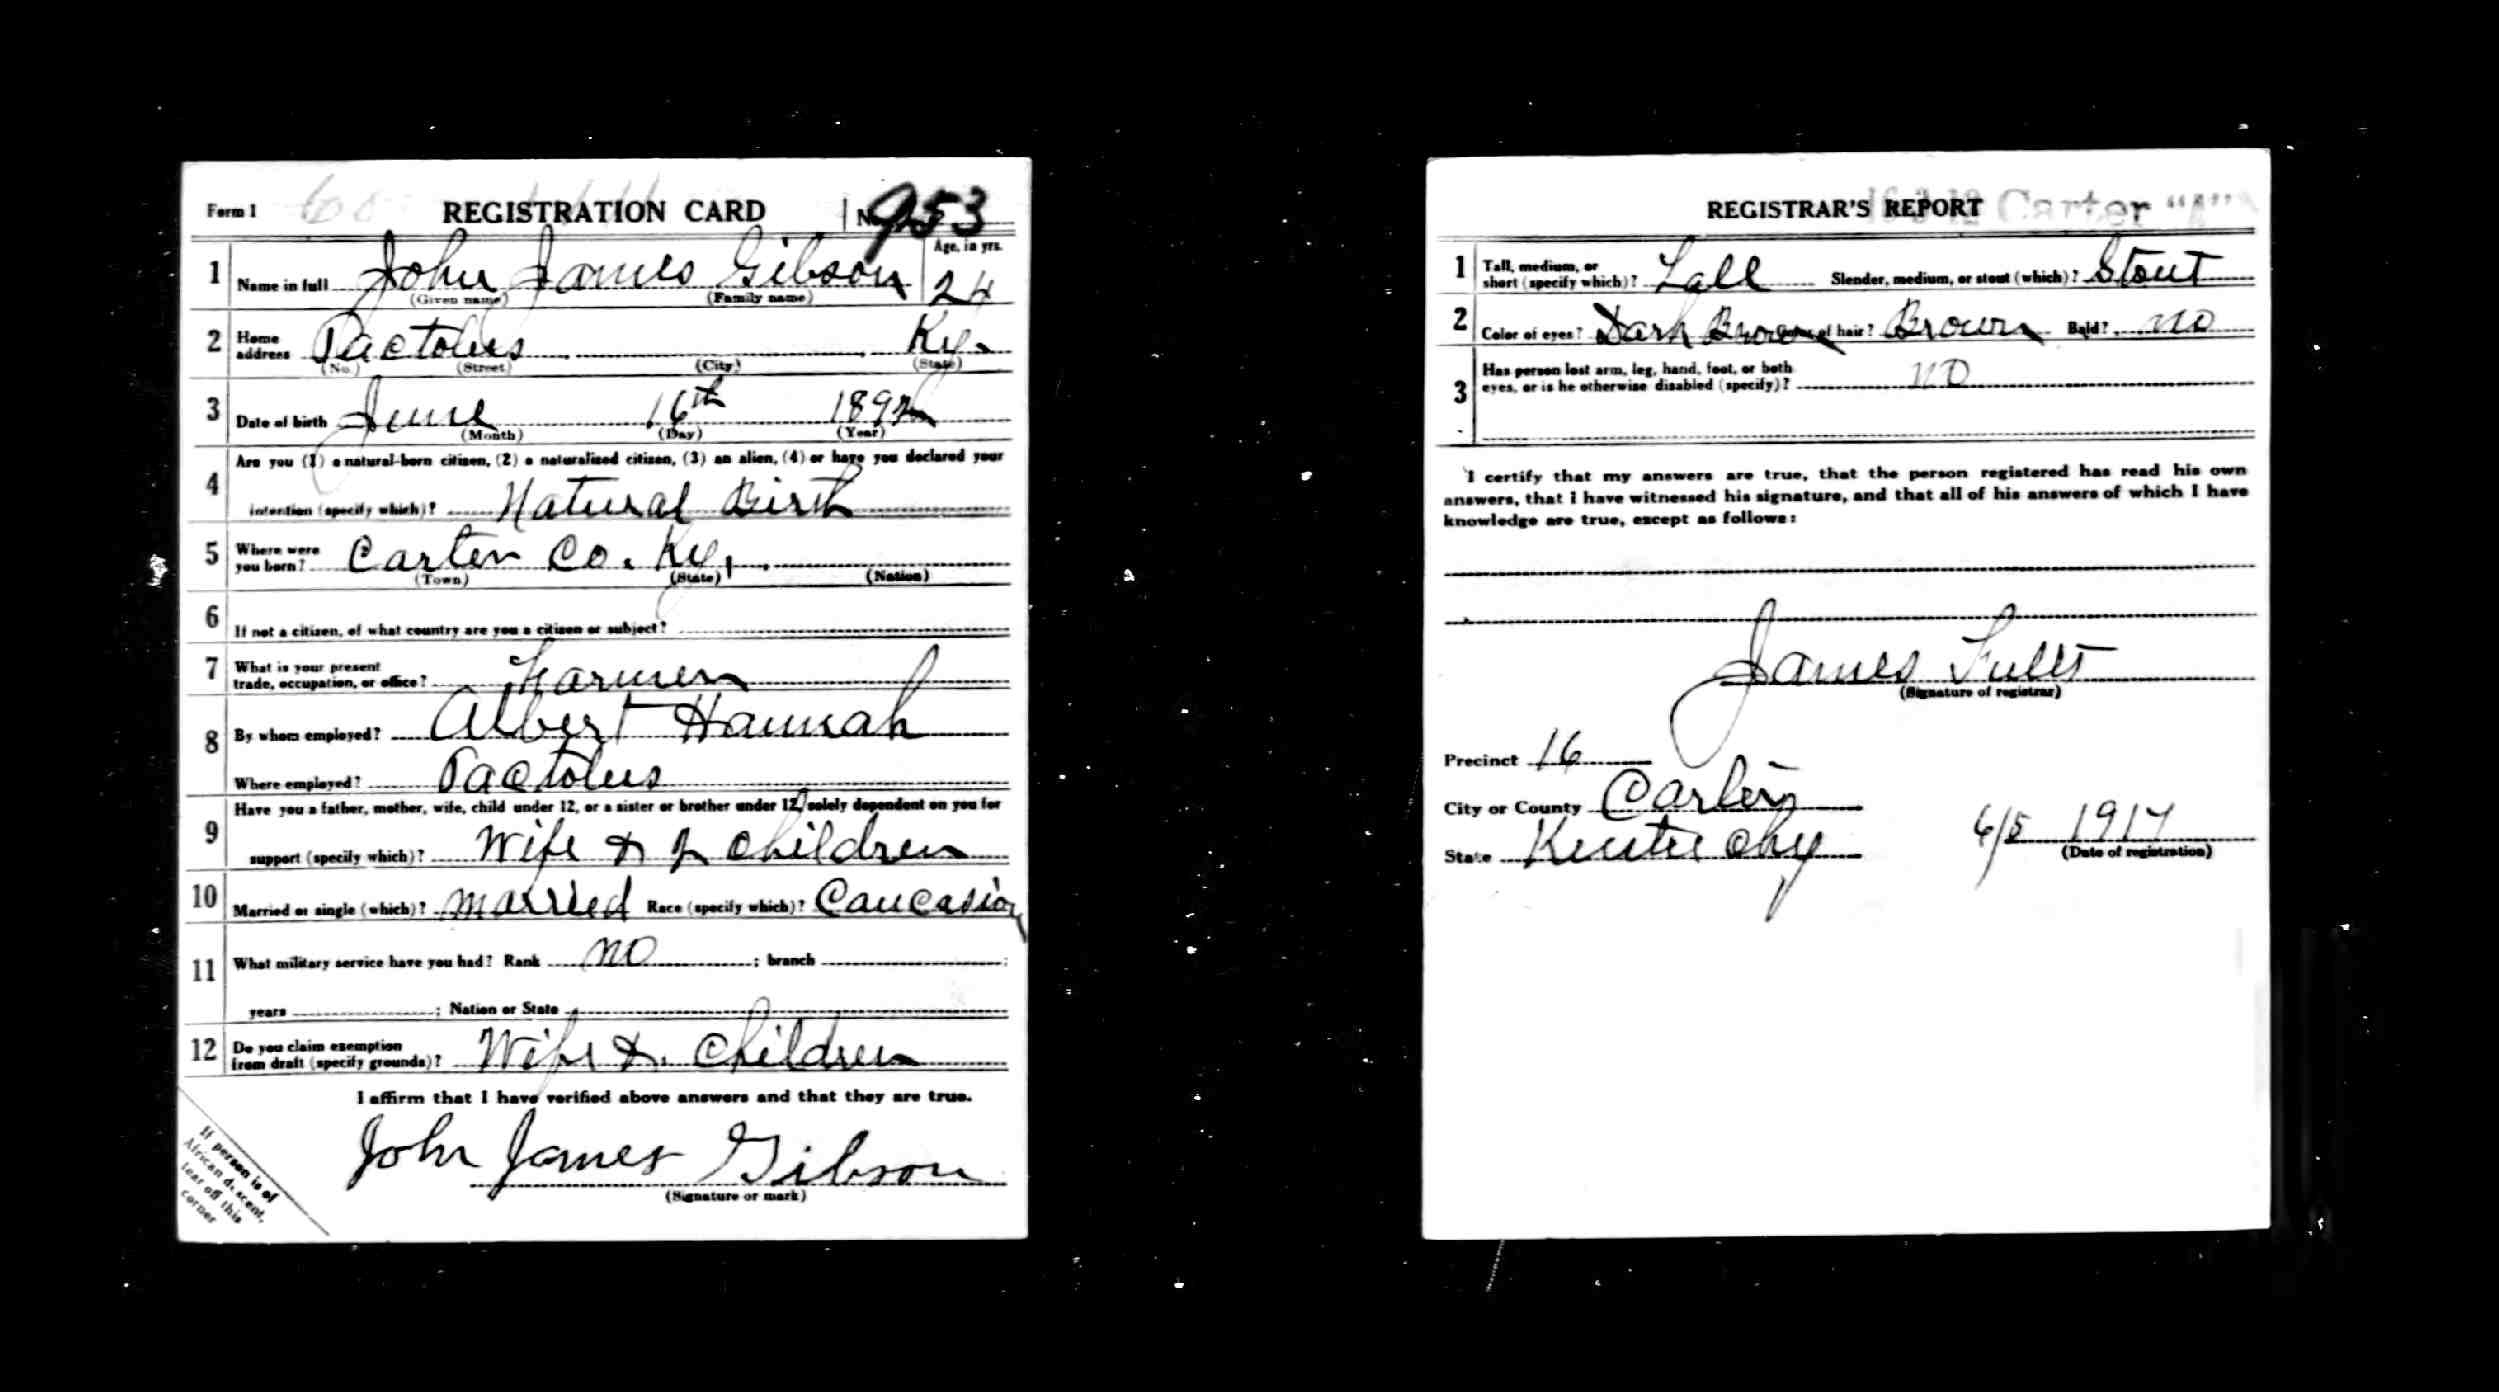 Form 1 REGISTRATION CARD No. 953
1 Name in full John James Gibson Age, in yrs. 24
(Given name) (Family name)
2 Home address Pactolus Ky.
(No.) (Street) (City) (State)
3 Date of birth June 16th 1892
(Month) (Day) (Year)
4 Are you (1) a natural-born citizen, (2) a naturalized citizen, (3) an alien, (4) or have you declared your
intention (specify which)? Natural Birth
5 Where were you born? Carter Co. Ky.
(Town) (State) (Nation)
6 If not a citizen, of what country are you a citizen or subject?
7 What is your present trade, occupation, or office? Farmer
8 By whom employed? Albert Hannah
Where employed? Pactolus
9 Have you a father, mother, wife, child under 12, or a sister or brother under 12, solely dependent on you for
support (specify which)? Wife & 2 children
10 Married or single (which)? Married Race (specify which)? Caucasian
11 What military service have you had? Rank no ; branch ;
years ; Nation or State
12 Do you claim exemption from draft (specify grounds)? Wife & children
I affirm that I have verified above answers and that they are true.
John James Gibson
(Signature or mark)
If person is of
African descent,
tear off this
corner
REGISTRAR'S REPORT 16-3-12 Carter "A"
1 Tall, medium, or short (specify which)? Tall Slender, medium, or stout (which)? Stout
2 Color of eyes? Dark Brown Color of hair? Brown Bald? no
3 Has person lost arm, leg, hand, foot, or both
eyes, or is he otherwise disabled (specify)? no
I certify that my answers are true, that the person registered has read his own
answers, that I have witnessed his signature, and that all of his answers of which I have
knowledge are true, except as follows:
James Fults
(Signature of registrar)
Precinct 16
City or County Carter
State Kentucky 6/5 1917
(Date of registration)